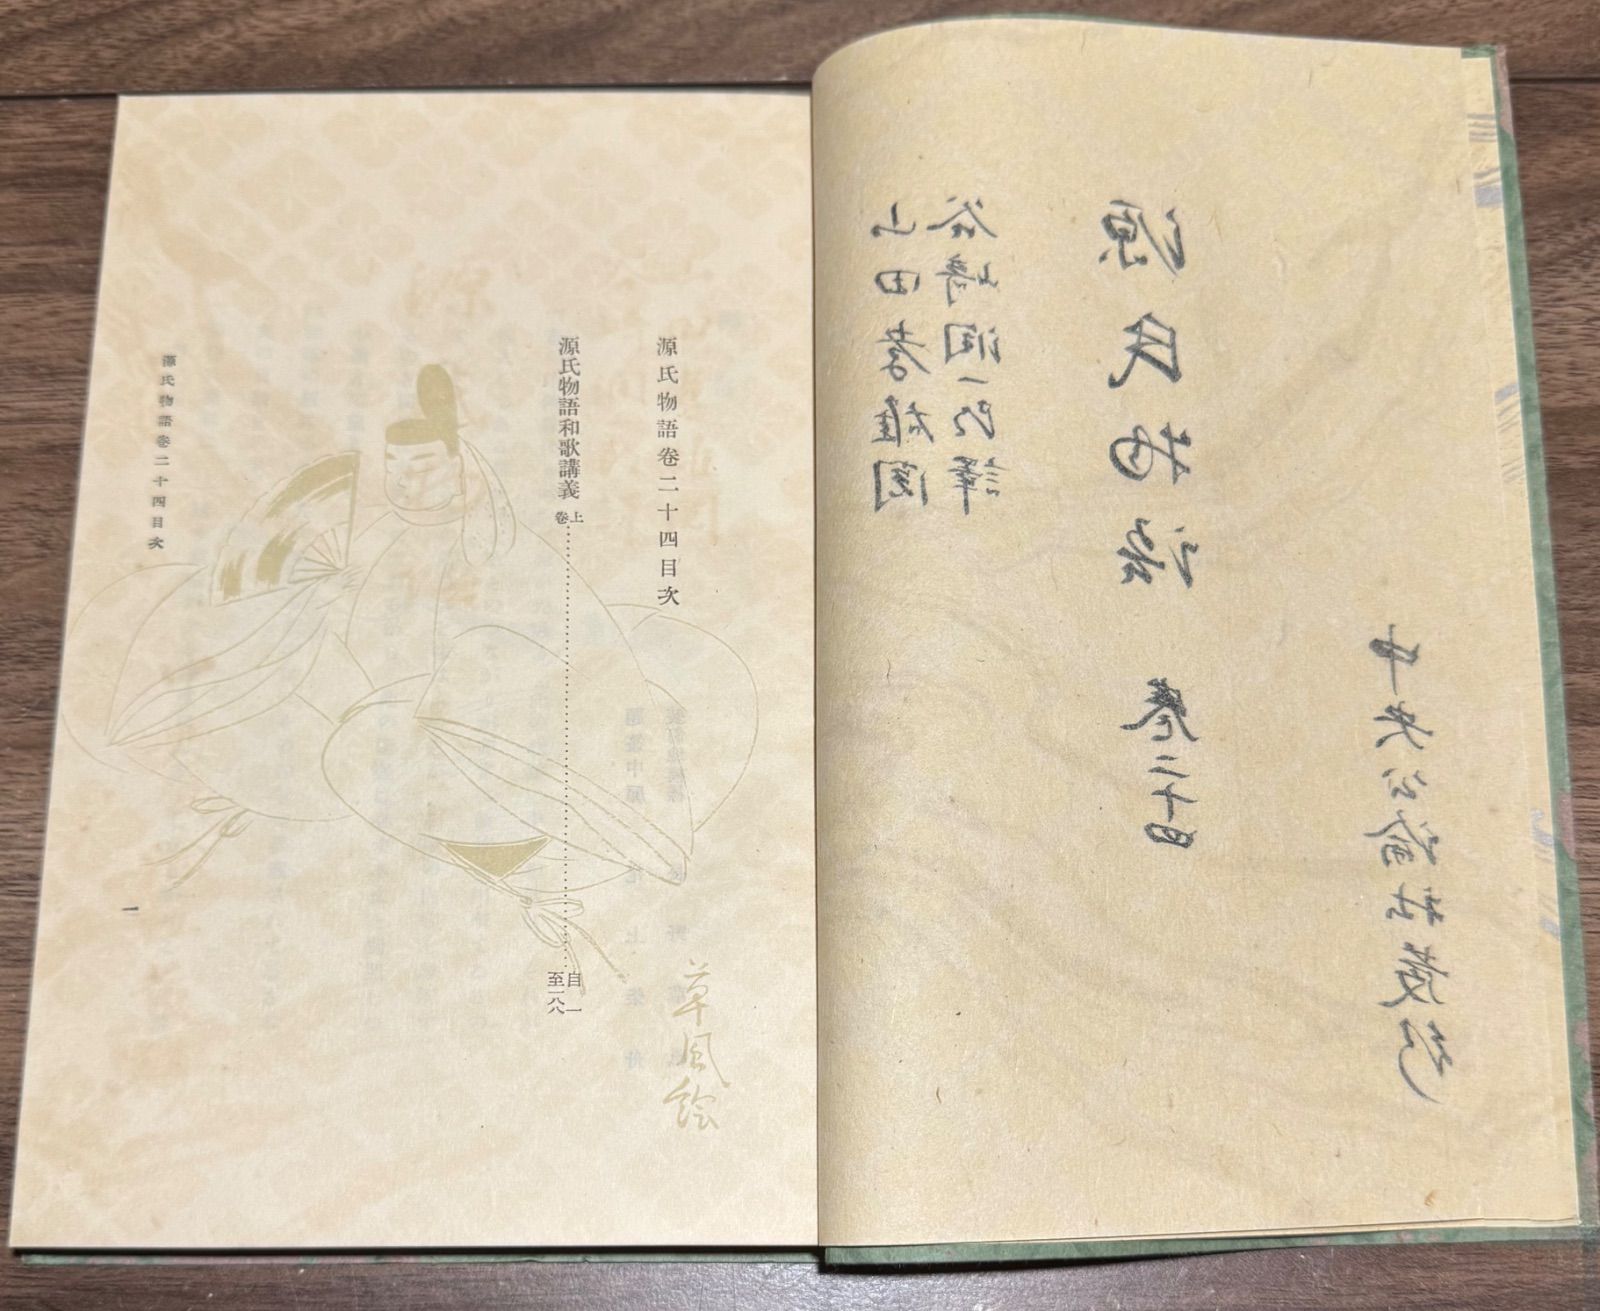 源氏物語
卷二十四
谷崎潤一郎譯
山田孝雄閲
中央公論社發行
源氏物語卷二十四目次
源氏物語和歌講義 上卷 自一 至一八八
草風絵
源氏物語卷二十四目次
一